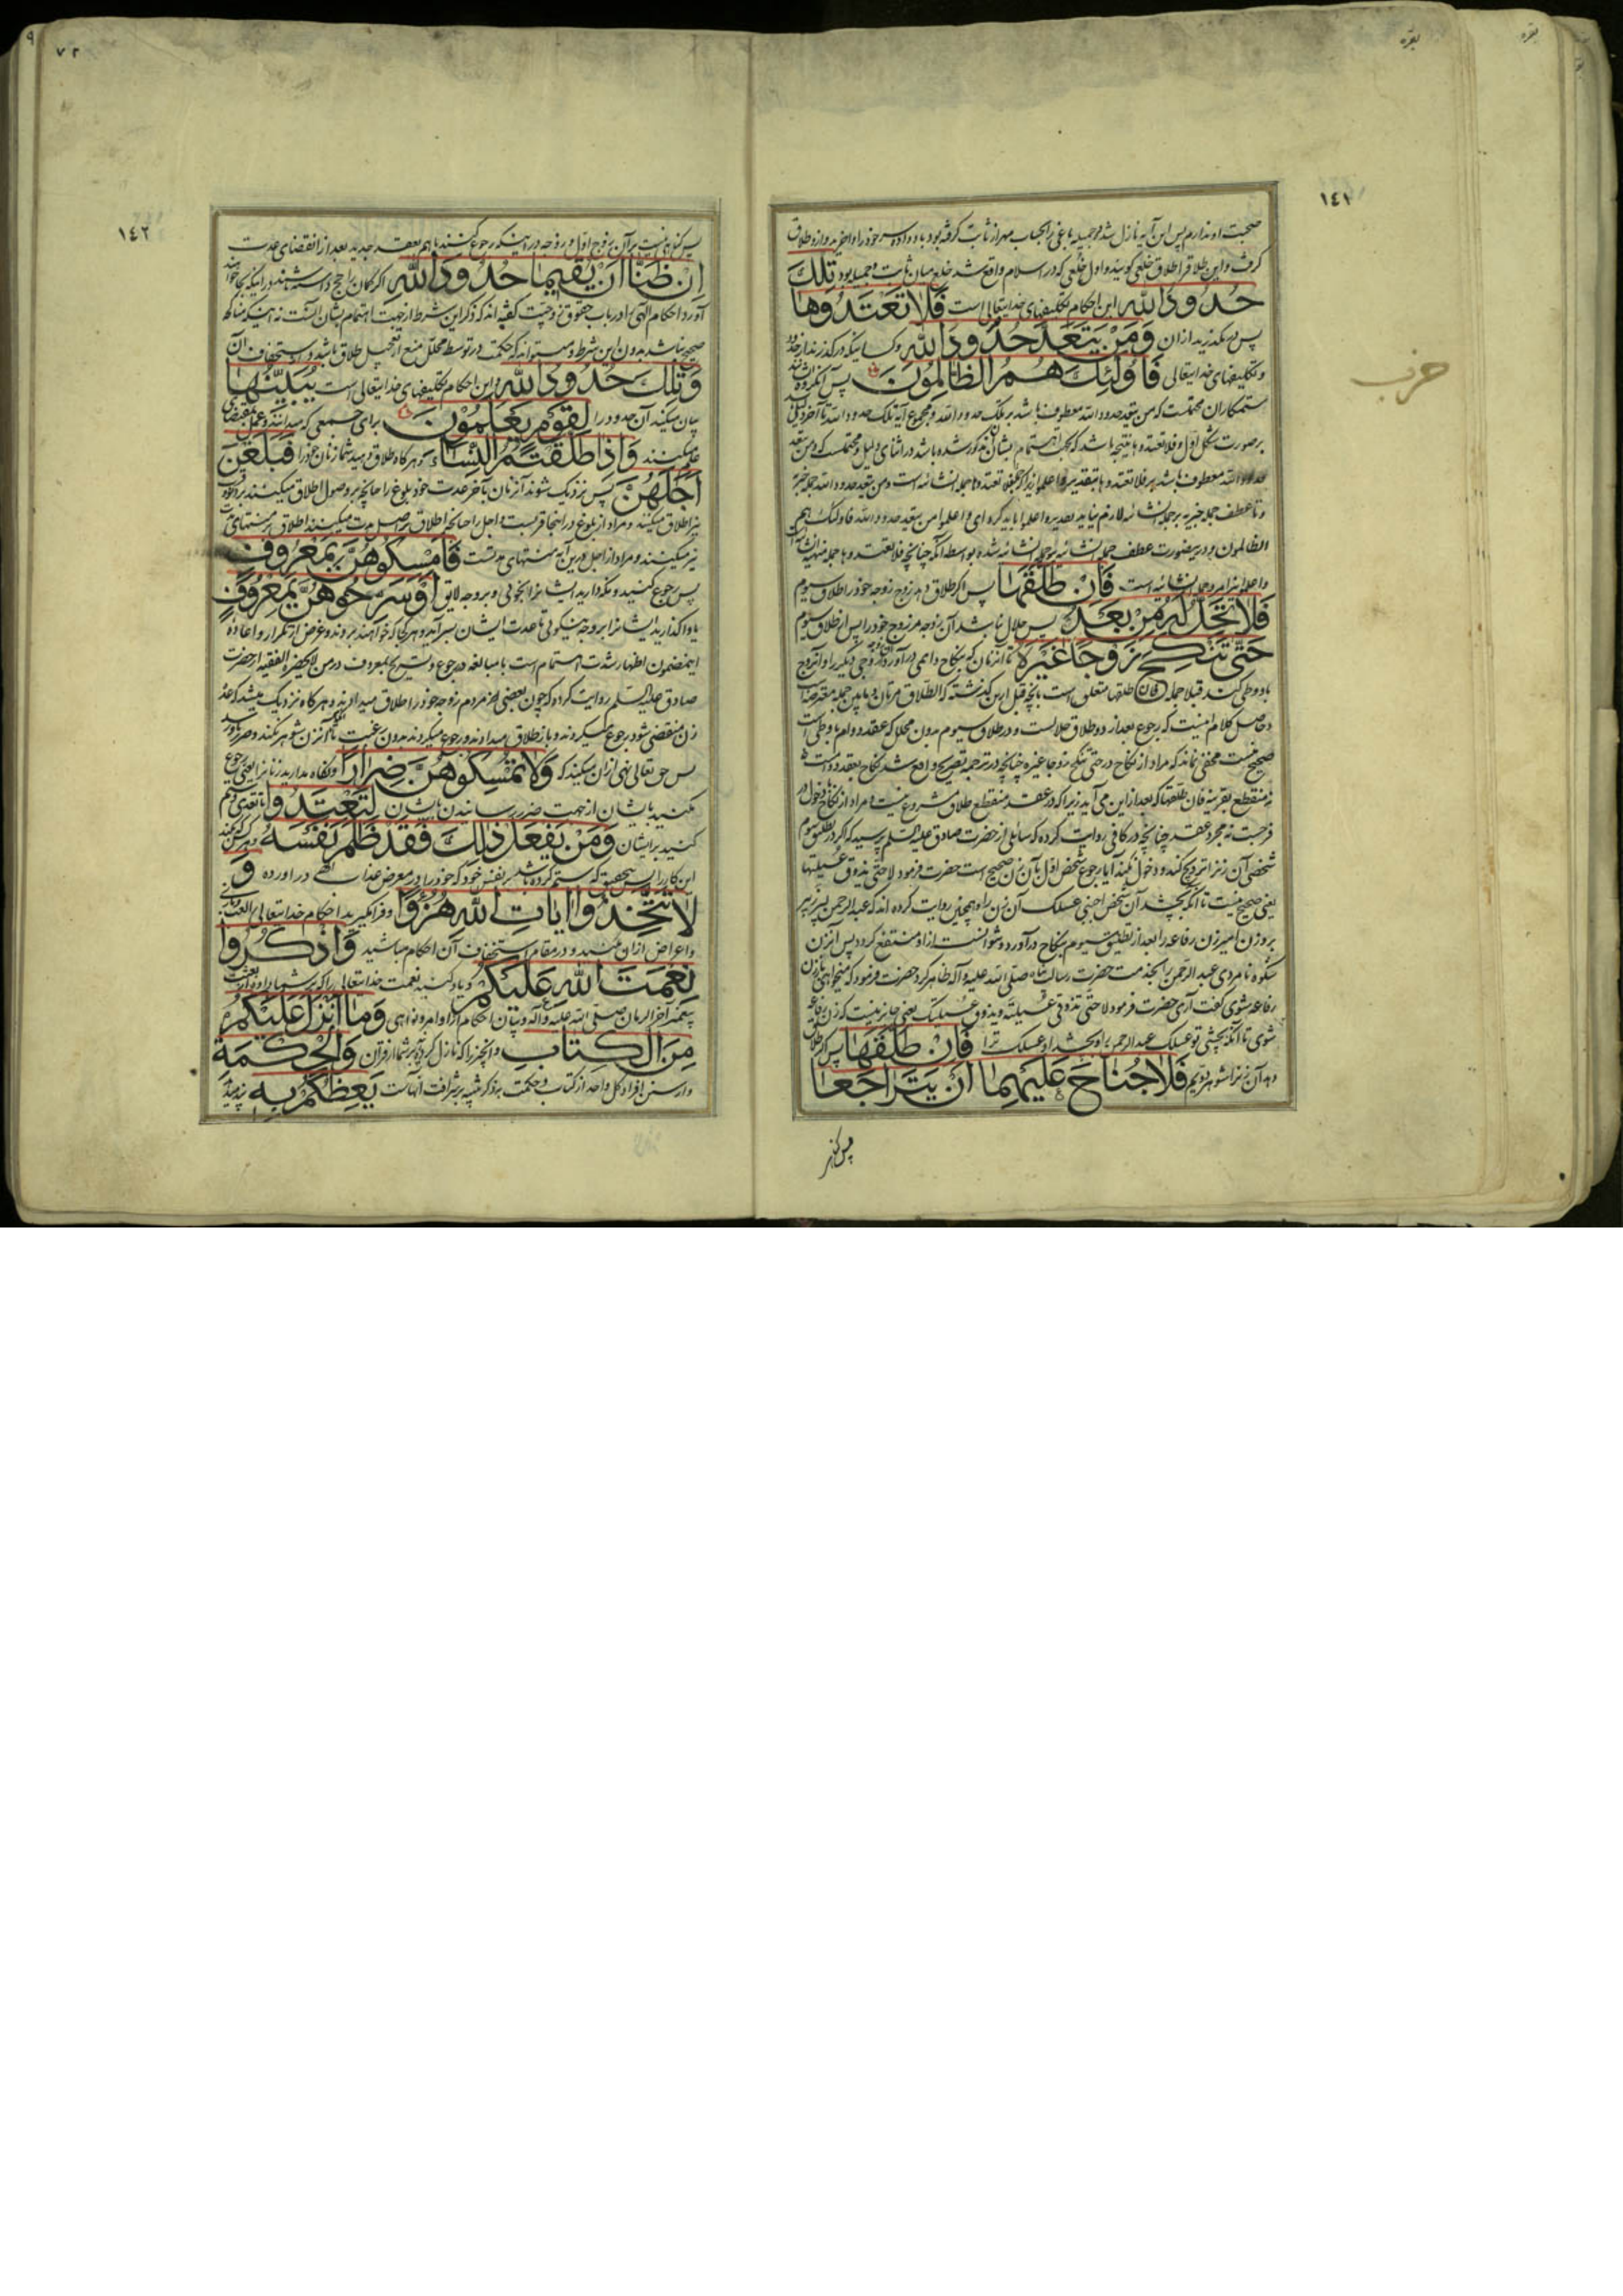 بقره
بقره
١٤١
حزب
صحبت او ندارم پس این آیه نازل شد و جمیله باغی را که بحساب مهر از ثابت گرفته بود باو داده سر خود را واخرید و ازو طلاق
گرفت و این طلاق را طلاق خلعی گویند و اول خلعی که در اسلام واقع شد خلع میان ثابت و جمیله بود تِلْكَ
حُدُودُ اللّٰهِ این احکام تکلیفهای خدایتعالی است فَلَا تَعْتَدُوهَا
پس در مگذرید از ان وَمَنْ يَتَعَدَّ حُدُودَ اللّٰهِ و کسانیکه در گذرند از حدود
و تکلیفهای خدایتعالی فَأُولٰئِكَ هُمُ الظَّالِمُونَ پس آنگروه ایشانند
ستمکاران محتملست که من یتعد حدود الله معطوف باشد بر تلک حدود الله و مجموع آیه تلک حدود الله تا آخر دلیل
بر صورت شکل اول و فلا تعتدوها نتیجه باشد که بجهت اهتمام بشان مذکور شده باشد در اثنای دلیل و محتملست که و من یتعد
حدود الله معطوف باشد بر فلا تعتدوها بتقدیر و اعلموا زیرا که جمله فلا تعتدوها جمله انشائیه است و من یتعد حدود الله جمله خبریه
و تا عطف جمله خبریه بر جمله انشائیه لازم نیاید تقدیر و اعلموا باید کرد ای و اعلموا من یتعد حدود الله فاولئک هم
الظالمون و درینصورت عطف جمله انشائیه بر جمله انشائیه شده بواسطه آنکه چنانچه فلا تعتدوها جمله منهیه انشائیه است
و اعلموا نیز امر و جمله انشائیه است فَإِنْ طَلَّقَهَا پس اگر طلاق دهد زوج زوجه خود را طلاق سیوم
فَلَا تَحِلُّ لَهُ مِنْ بَعْدُ پس حلال نباشد آن زوجه مر زوج خود را پس از طلاق سیوم
حَتّٰى تَنْكِحَ زَوْجًا غَيْرَهُ تا آنزمان که بنکاح دایمی در آورد آن زوجه زوجی دیگر را و آنزوج
با و وطی کند قبلا جمله فان طلقها متعلق است بآنچه قبل ازین گذشته که الطلاق مرتان و مابین جمله معترضه است
و حاصل کلام اینست که رجوع بعد از دو طلاق حلالست و در طلاق سیوم بدون محلل که عقد دوام با وطی است
صحیح نیست مخفی نماند که مراد از نکاح در حتی تنکح زوجا غیره چنانچه در ترجمه بتصریح واقع شد نکاح بعقد دوامست
نه منقطع بقرینه فان طلقها که بعد ازین می آید زیرا که در عقد منقطع طلاق مشروع نیست و مراد از نکاح دخول در
فرجست نه مجرد عقد چنانچه در کافی روایت کرده که سائلی از حضرت صادق علیه السلم پرسید که اگر در تطلیق سیوم
شخصی آن زنرا تزویج کند و دخول نکند آیا رجوع شخص اول بآن زن صحیح است حضرت فرمود لا حتی یذوق عسیلتها
یعنی صحیح نیست تا آنکه بچشد آن شخص اجنبی عسلک آن زن را و همچنین روایت کرده اند که عبد الرحمن پسر زبیر
بر وزن امیر زن رفاعه را بعد از تطلیق سیوم بنکاح در آورد و نتوانست از او منتفع گردد پس آنزن
شکوه نامردی عبد الرحمن را بخدمت حضرت رسالت پناه صلی الله علیه و آله ظاهر کرد حضرت فرمود که میخواهی باز زن
رفاعه شوی گفت آری حضرت فرمود لا حتی تذوقی عسیلته و یذوق عسیلتک یعنی جایز نیست که زن رفاعه
شوی تا آنکه بچشی تو عسلک عبد الرحمن را و بچشد او عسلک ترا فَإِنْ طَلَّقَهَا پس اگر طلاق
دهد آن زنرا شوهر دویم فَلَا جُنَاحَ عَلَيْهِمَا أَنْ يَتَرَاجَعَا
پس گناهی
٧٢
١٤٢
پس گناهی نیست بر آن زوج اول و زوجه در اینکه رجوع کنند با هم بعقد جدید بعد از انقضای عدت
إِنْ ظَنَّا أَنْ يُقِيمَا حُدُودَ اللّٰهِ اگر گمان راجح داشته باشند در اینکه بجا خواهند
آورد احکام الهی را در باب حقوق زوجیت گفته اند که ذکر این شرط از جهت اهتمام بشان آنست نه اینکه مناکحه
صحیح نباشد بدون این شرط و میتواند که حکمت در توسط محلل منع از تعجیل طلاق باشد و از استخفاف بان
وَتِلْكَ حُدُودُ اللّٰهِ و این احکام تکلیفهای خدایتعالی است يُبَيِّنُهَا
بیان میکند آن حدود را لِقَوْمٍ يَعْلَمُونَ برای جمعی که میدانند و عمل بمقتضای
علم میکنند وَإِذَا طَلَّقْتُمُ النِّسَاءَ و هر گاه طلاق دهید شما زنان خود را فَبَلَغْنَ
أَجَلَهُنَّ پس نزدیک شوند آنزنان بآخر عدت خود بلوغ را چنانچه بر وصول اطلاق میکنند بر قرب
نیز اطلاق میکنند و مراد از بلوغ در اینجا قربست و اجل را چنانچه اطلاق بر اصل مدت میکنند اطلاق بر منتهای مدت
نیز میکنند و مراد از اجل درین آیه منتهای مدتست فَأَمْسِكُوهُنَّ بِمَعْرُوفٍ
پس رجوع کنید و نگه دارید ایشانرا بخوبی و بر وجه لایق أَوْ سَرِّحُوهُنَّ بِمَعْرُوفٍ
یا واگذارید ایشانرا بر وجه نیکوئی تا عدت ایشان بسر آید و هر کجا که خواهند بروند و غرض از تکرار و اعاده
اینمضمون اظهار شدت اهتمام است با مبالغه در رجوع و تسریح بمعروف در من لایحضره الفقیه از حضرت
صادق علیه السلم روایت کرده که چون بعضی از مردم زوجه خود را طلاق میدادند و هر گاه نزدیک میشد که عدّه
زن منقضی شود رجوع میکردند و باز طلاق میدادند و رجوع میکردند بدون رغبت تا آنزن شوهر نکند و ضرر باو رسد
پس حق تعالی نهی ازان میکند که وَلَا تُمْسِكُوهُنَّ ضِرَارًا و نگاه مدارید زنانرا یعنی رجوع
مکنید با یشان از جهت ضرر رساندن بایشان لِتَعْتَدُوا تا تعدی و ستم
کنید بر ایشان وَمَنْ يَفْعَلْ ذٰلِكَ فَقَدْ ظَلَمَ نَفْسَهُ و هر کس که بکند
این کار را پس بتحقیق که ستم کرده باشد بر نفس خود که خود را در معرض عذاب الهی در آورده وَ
لَا تَتَّخِذُوا آيَاتِ اللّٰهِ هُزُوًا و فرا مگیرید احکام خدایتعالی را بعنوان
و اعراض از ان مکنید و در مقام استخفاف آن احکام مباشید وَاذْكُرُوا
نِعْمَتَ اللّٰهِ عَلَيْكُمْ و یاد کنید نعمت خدایتعالی را که بر شما داده از بعثت
پیغمبر آخر الزمان صلی الله علیه و آله و بیان احکام از اوامر و نواهی وَمَا أَنْزَلَ عَلَيْكُمْ
مِنَ الْكِتَابِ و آنچیز را که نازل کرده بر شما از قرآن وَالْحِكْمَةِ
کل واحد از کتاب و حکمت بذکر تنبیه بر شرافت آنهاست يَعِظُكُمْ بِهِ پند میدهد